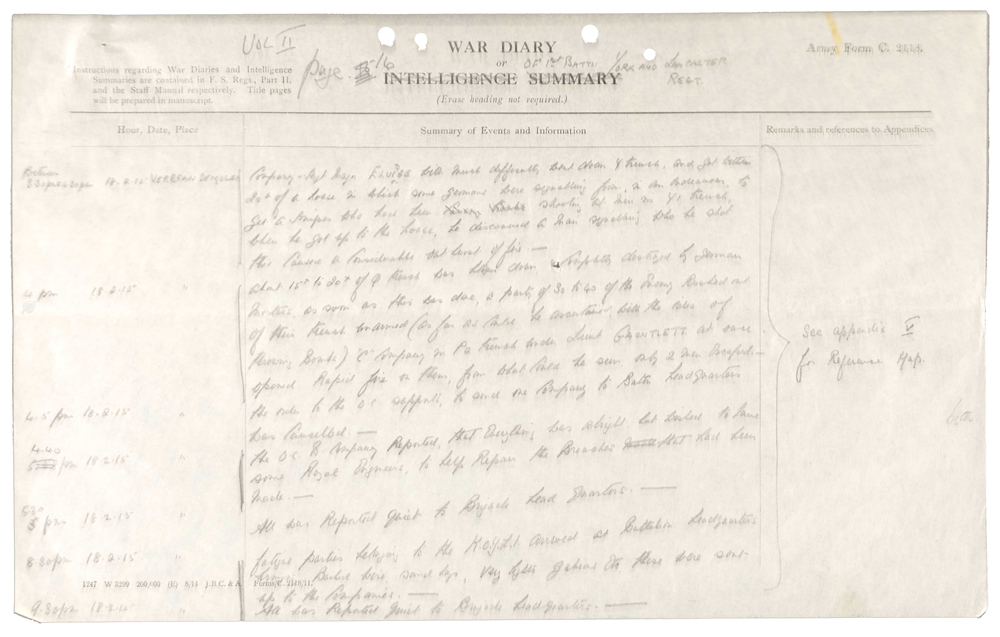 VOL II
Page 16
WAR DIARY
OR
OF 1st BATTN YORK AND LANCASTER
REGT.
INTELLIGENCE SUMMARY
(Erase heading not required.)
Army Form C. 2118.
Instructions regarding War Diaries and Intelligence
Summaries are contained in F. S. Regs., Part II.
and the Staff Manual respectively. Title pages
will be prepared in manuscript.
Hour, Date, Place
Summary of Events and Information
Remarks and references to Appendices
Between
18.2.15
Company - Sergt Major with much difficulty went down Y trench, and got within
20x of a house in which some Germans were signalling from, in an endeavour to
get a sniper who had been shooting at men in Y trench,
when he got up to the house, he discovered a man signalling who he shot
this caused a considerable outburst of fire. —
4 pm 18.2.15 "
About 15x to 20x of trench was blown down & completely destroyed by German
Mortars, as soon as this was done, a party of 30 to 40 of the Enemy Rushed out
of their trench unarmed (as far as could be ascertained, with the of
throwing Bombs) "C" Company in trench under Lieut GAUNTLETT at once
opened Rapid fire on them, from what could be seen only 2 men Escaped. —
4.5 pm 18.2.15 "
The order to the O.C. supports, to send one Company to Battn Head Quarters
was Cancelled. —
4.40
pm 18.2.15 "
The O.C. Company Reported, that Everything was alright, but wished to have
some Royal Engineers, to help Repair the Breaches that had been
made. —
5.30
pm 18.2.15 "
All was Reported Quiet to Brigade Head Quarters. —
8.30pm 18.2.15 "
fatigue parties belonging to the K.O.Y.L.I. arrived at Battalion Headquarters
Barbed wire, sand bags, these were sent
up to the Companies. —
9.30pm 18.2.15 "
All was Reported Quiet to Brigade Head Quarters. —
See appendix V
for Reference Map.
1247 W 3299 200,000 (E) 8/14 J.B.C. & A. Forms/C. 2118/11.